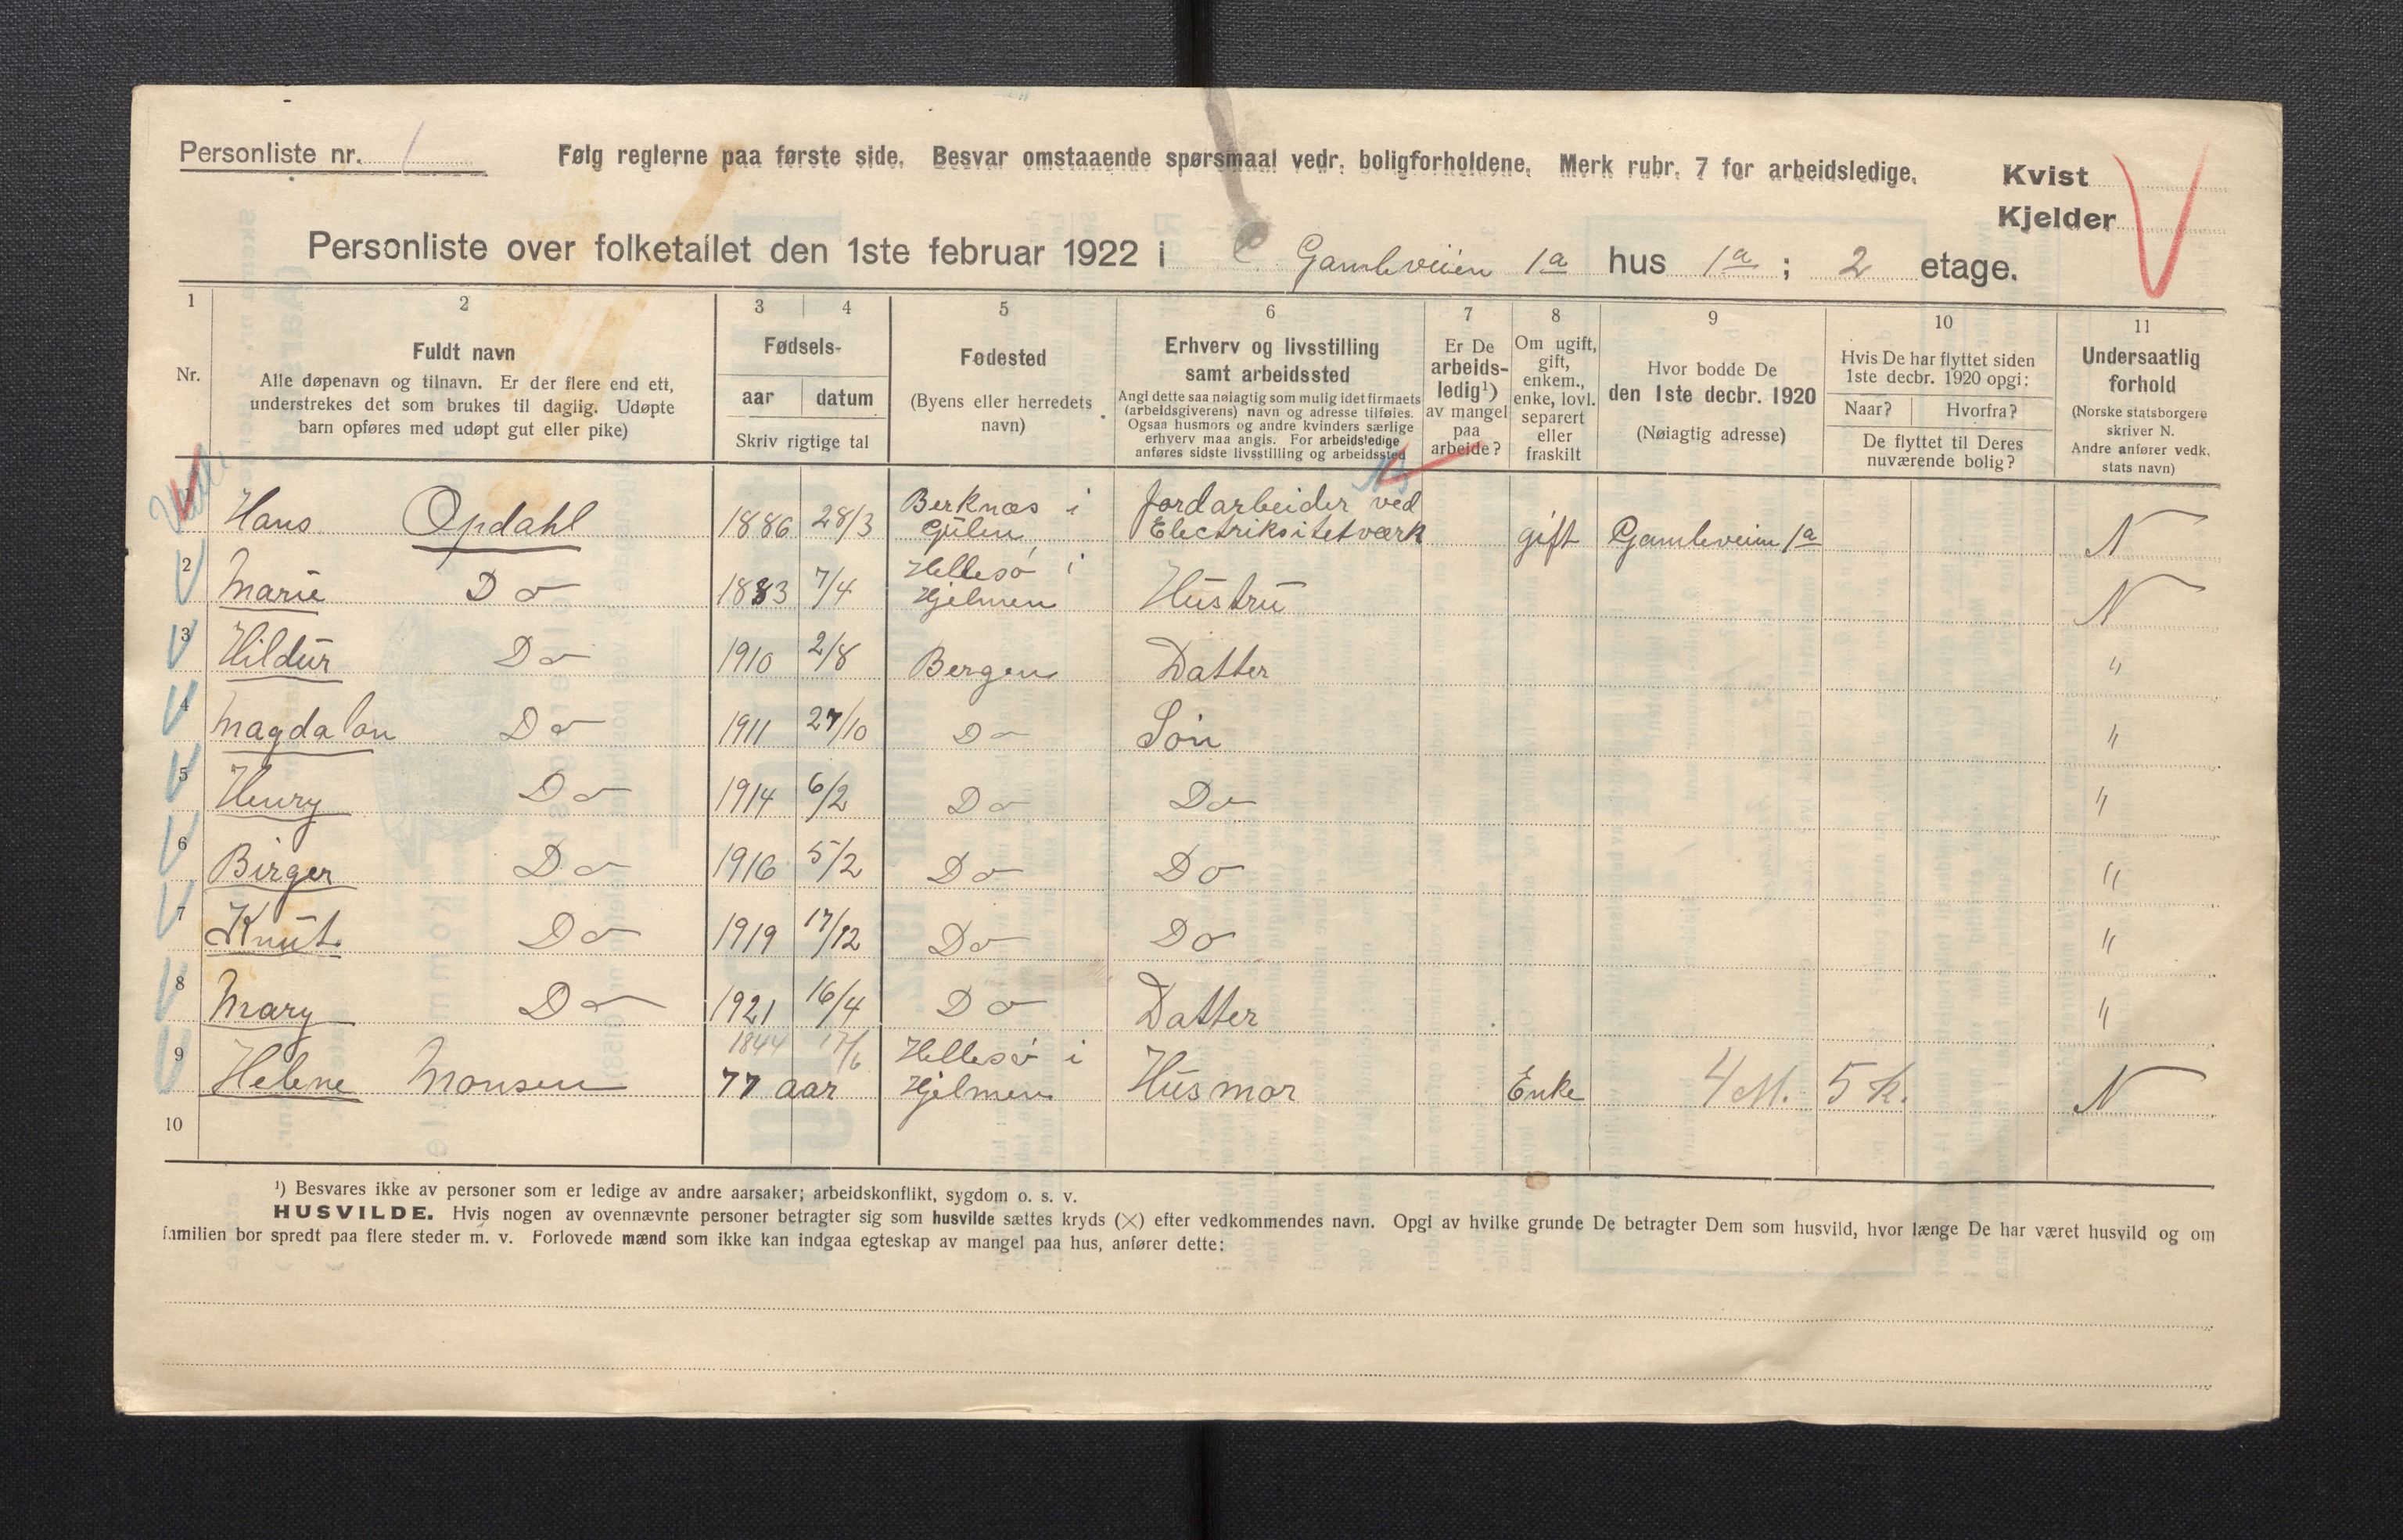 Personliste nr. 1
Følg reglerne paa første side. Besvar omstaaende spørsmaal vedr. boligforholdene. Merk rubr. 7 for arbeidsledige.
Kvist
Kjelder
Personliste over folketallet den 1ste februar 1922 i Gamleveien 1a hus 1a; 2 etage.
1 2 3 4 5 6 7 8 9 10 11
Nr.
Fuldt navn
Alle døpenavn og tilnavn. Er der flere end ett,
understrekes det som brukes til daglig. Udøpte
barn opføres med udøpt gut eller pike)
Fødsels-
aar datum
Skriv rigtige tal
Fødested
(Byens eller herredets
navn)
Erhverv og livsstilling
samt arbeidssted
Angi dette saa nøiagtig som mulig idet firmaets
(arbeidsgiverens) navn og adresse tilføies.
Ogsaa husmors og andre kvinders særlige
erhverv maa angis. For arbeidsledige
anføres sidste livsstilling og arbeidssted
Er De
arbeids-
ledig¹)
av mangel
paa
arbeide?
Om ugift,
gift,
enkem.,
enke, lovl.
separert
eller
fraskilt
Hvor bodde De
den 1ste decbr. 1920
(Nøiagtig adresse)
Hvis De har flyttet siden
1ste decbr. 1920 opgi:
Naar? Hvorfra?
De flyttet til Deres
nuværende bolig?
Undersaatlig
forhold
(Norske statsborgere
skriver N.
Andre anfører vedk.
stats navn)
Hans Opdahl 1886 28/3 Berknæs i Gulen Jordarbeider ved Electriksitetværk gift Gamleveien 1a N
2 Marie Do 1883 7/4 Hellesø i Hjelmen Hustru N
3 Hildur Do 1910 2/8 Bergen Datter "
4 Magdalon Do 1911 27/10 Do Søn "
5 Henry Do 1914 6/2 Do Do "
6 Birger Do 1916 5/2 Do Do "
7 Knut Do 1919 17/12 Do Do "
8 Mary Do 1921 16/4 Do Datter "
1844 17/6
9 Helene Monsen 77 aar Hellesø i Hjelmen Husmor Enke 4 M. 5 K. N
10
¹) Besvares ikke av personer som er ledige av andre aarsaker; arbeidskonflikt, sygdom o. s. v.
HUSVILDE. Hvis nogen av ovennævnte personer betragter sig som husvilde sættes kryds (×) efter vedkommendes navn. Opgi av hvilke grunde De betragter Dem som husvild, hvor længe De har været husvild og om
familien bor spredt paa flere steder m. v. Forlovede mænd som ikke kan indgaa egteskap av mangel paa hus, anfører dette: